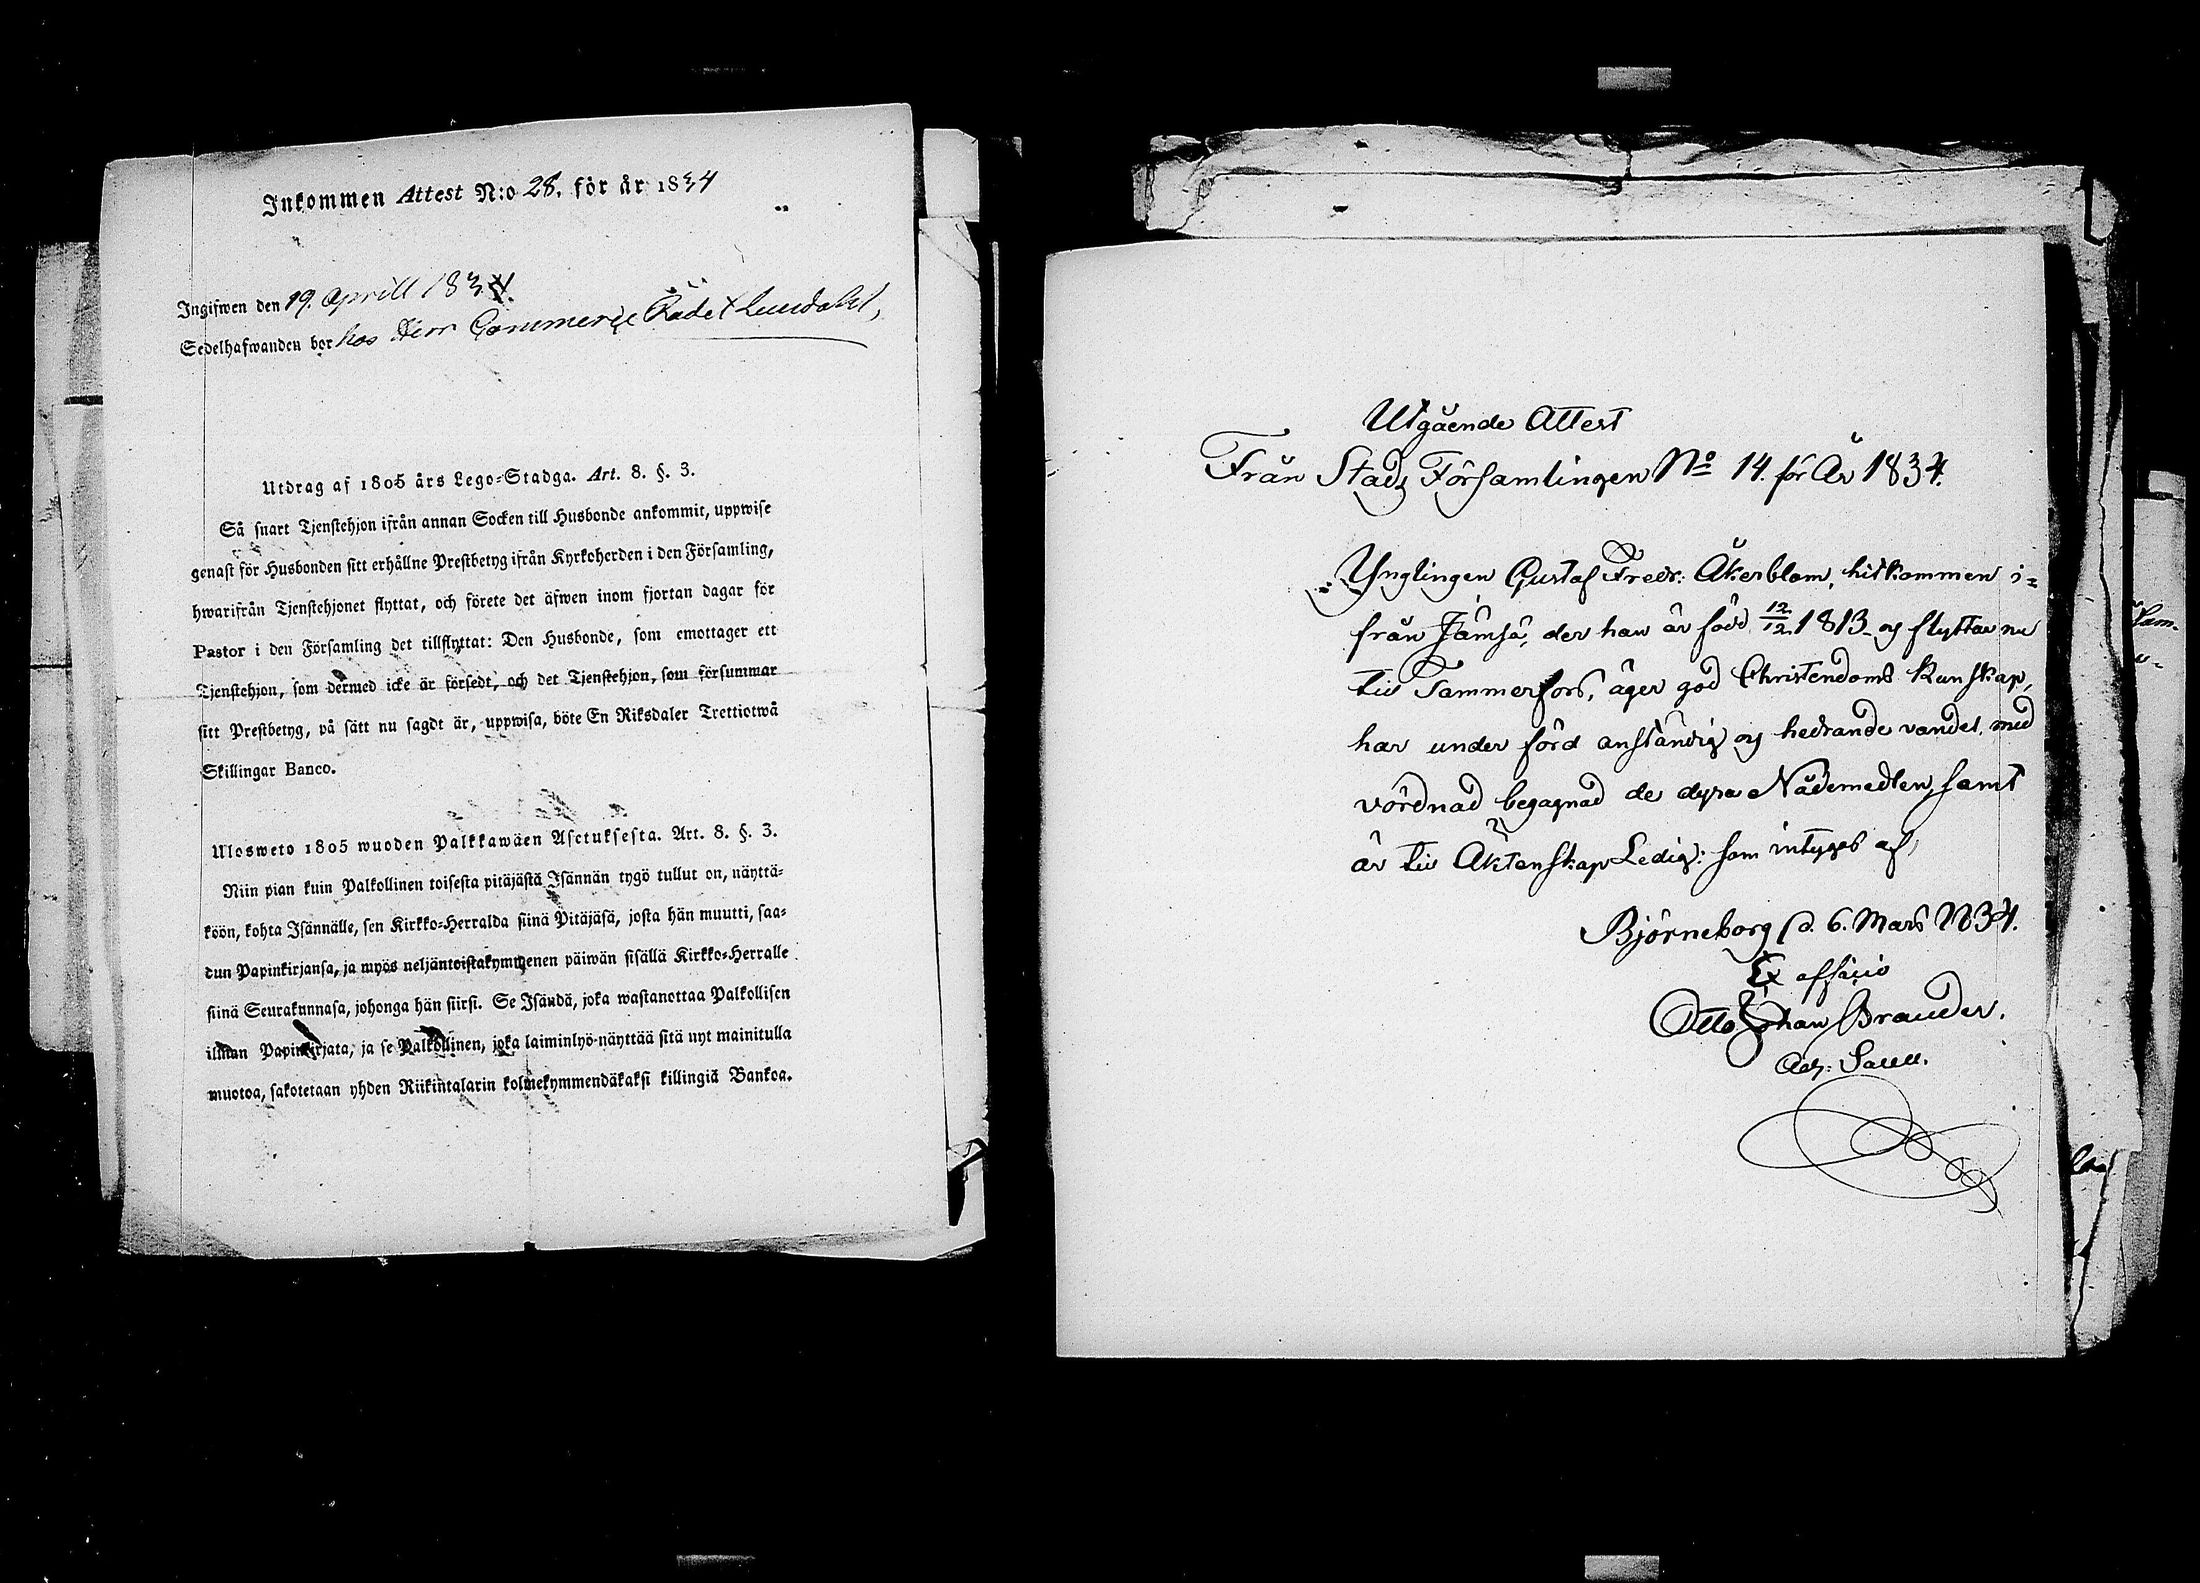 Inkommen Attest N:o 28. för år 1834
Ingifwen den 19. Aprill 1834.
Sedelhafwanden bor hos Herr Commerçe Rådet Lundahl,
Utdrag af 1805 års Lego-Stadga. Art. 8. §. 3.
Så snart Tjenstehjon ifrån annan Socken till Husbonde ankommit, uppwise
genast för Husbonden sitt erhållne Prestbetyg ifrån Kyrkoherden i den Församling,
hwarifrån Tjenstehjonet flyttat, och förete det äfwen inom fjortan dagar för
Pastor i den Församling det tillflyttat: Den Husbonde, som emottager ett
Tjenstehjon, som dermed icke är försedt, och det Tjenstehjon, som försummar
sitt Prestbetyg, på sätt nu sagdt är, uppwisa, böte En Riksdaler Trettiotwå
Skillingar Banco.
Ulosweto 1805 wuoden Palkkawäen Asetuksesta. Art. 8. §. 3.
Niin pian kuin Palkollinen toisesta pitäjästä Isännän tygö tullut on, näyttä-
köön, kohta Isännälle, sen Kirkko-Herralda siinä Pitäjäsä, josta hän muutti, saa-
dun Papinkirjansa, ja myös neljäntoistakymmenen päiwän sisällä Kirkko-Herralle
siinä Seurakunnasa, johonga hän siirsi. Se Isändä, joka wastanottaa Palkollisen
ilman Papinkirjata, ja se Palkollinen, joka laiminlyö näyttää sitä nyt mainitulla
muotoa, sakotetaan yhden Riikintalarin kolmekymmendäkaksi killingiä Bankoa.
Utgående Attest
Från Stads Församlingen No 14. för År 1834.
Ynglingen Gustaf Fredr: Åkerblom, hitkommen i=
från Jämsä, der han är född 12/12 1813 og flyttar nu
till Tammerfors, äger god Christendoms Kunskap,
har under förd anständig og hedrande vandel, med
vördnad begagnad de dyra Nådemedlen, samt
är till Äktenskap Ledig: som intygas af,
Björneborg d. 6. Mars 1834.
Ex officio
Otto Johan Brander.
Adj: Sacell.